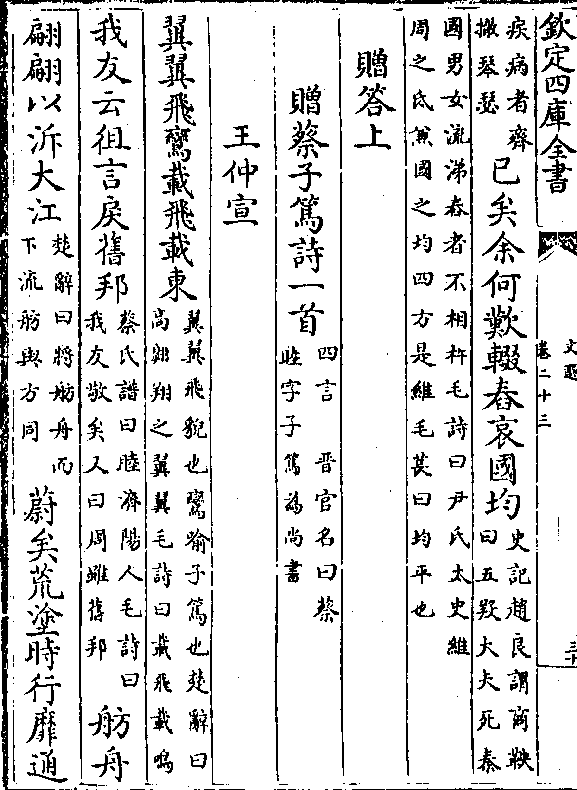 欽定四庫全書
文選
卷二十三
疾病者齊
撤琴瑟
已矣余何歎輟舂哀國均
史記趙良謂商鞅
曰五羖大夫死秦
國男女流涕舂者不相杵毛詩曰尹氏太史維
周之氐秉國之均四方是維毛萇曰均平也
贈答上
贈蔡子篤詩一首
四言 晋官名曰蔡
睦字子篤為尚書
王仲宣
翼翼飛鸞載飛載東
翼翼飛貌也鸞喻子篤也楚辭曰
高翺翔之翼翼毛詩曰載飛載鳴
我友云徂言戾舊邦
蔡氏譜曰睦濟陽人毛詩曰
我友敬矣又曰周雖舊邦
舫舟
翩翩以泝大江
楚辭曰將舫舟而
下流舫與方同
蔚矣荒塗時行靡通